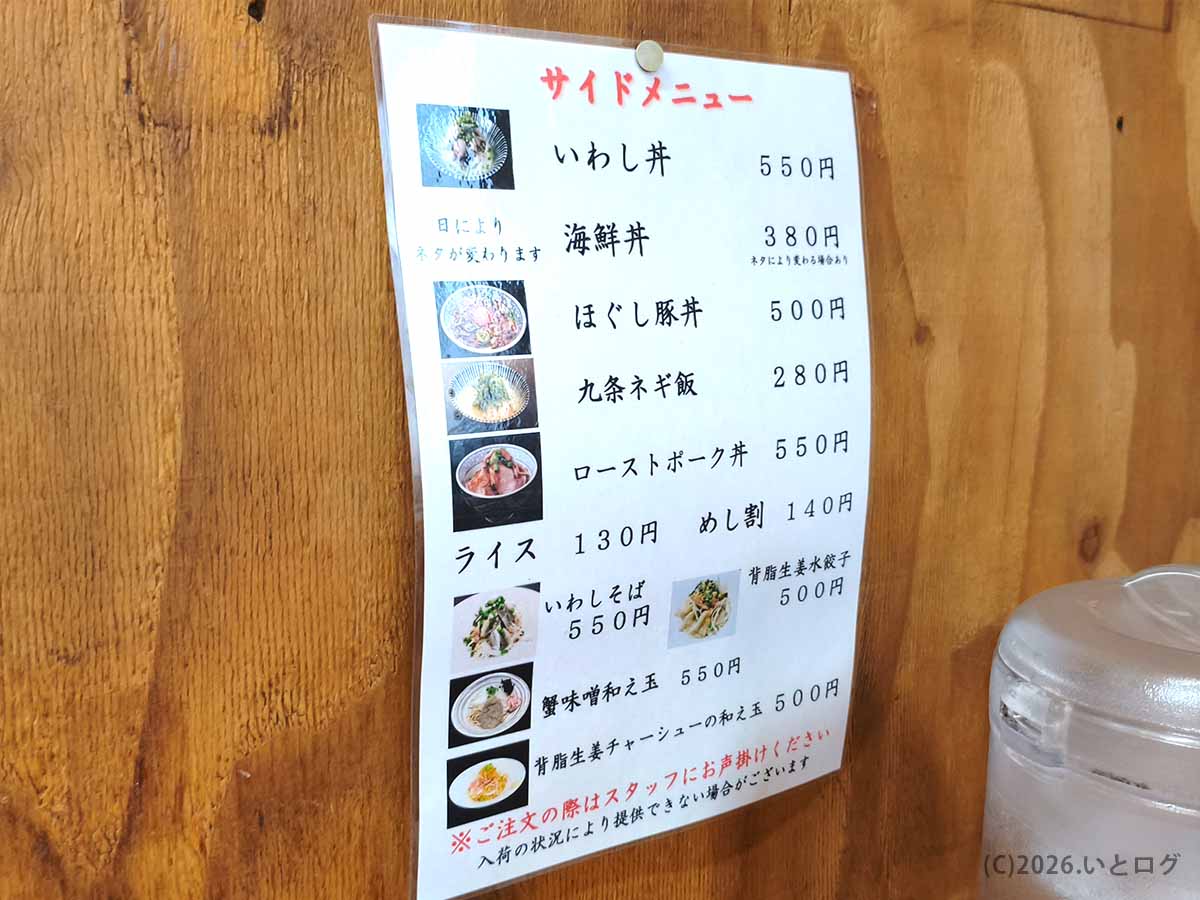 サイドメニュー
いわし丼 550円
日により
ネタが変わります
海鮮丼 380円
ネタにより変わる場合あり
ほぐし豚丼 500円
九条ネギ飯 280円
ローストポーク丼 550円
ライス 130円 めし割 140円
いわしそば
550円
背脂生姜水餃子
500円
蟹味噌和え玉 550円
背脂生姜チャーシューの和え玉 500円
※ご注文の際はスタッフにお声掛けください
入荷の状況により提供できない場合がございます
(C)2026.いとログ